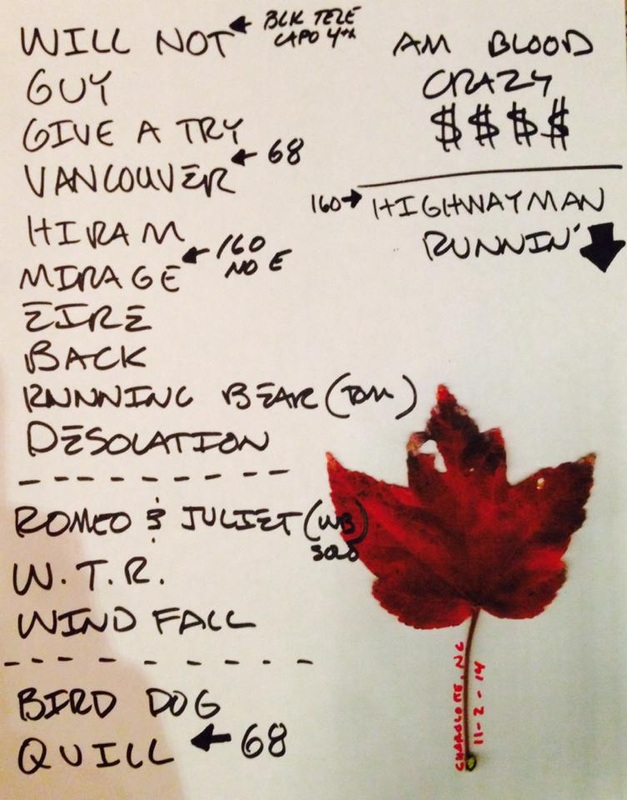 WILL NOT ← BLK TELE
CAPO 4th
GUY
GIVE A TRY
VANCOUVER ← 68
HIRAM
MIRAGE ← 160
NO E
EIRE
BACK
RUNNING BEAR (TOM)
DESOLATION
ROMEO & JULIET (WB)
SOLO
W.T.R.
WIND FALL
BIRD DOG
QUILL ← 68
AM BLOOD
CRAZY
$$$$
160 → HIGHWAYMAN
RUNNIN' ↓
CHARLOTTE, NC
11-2-14